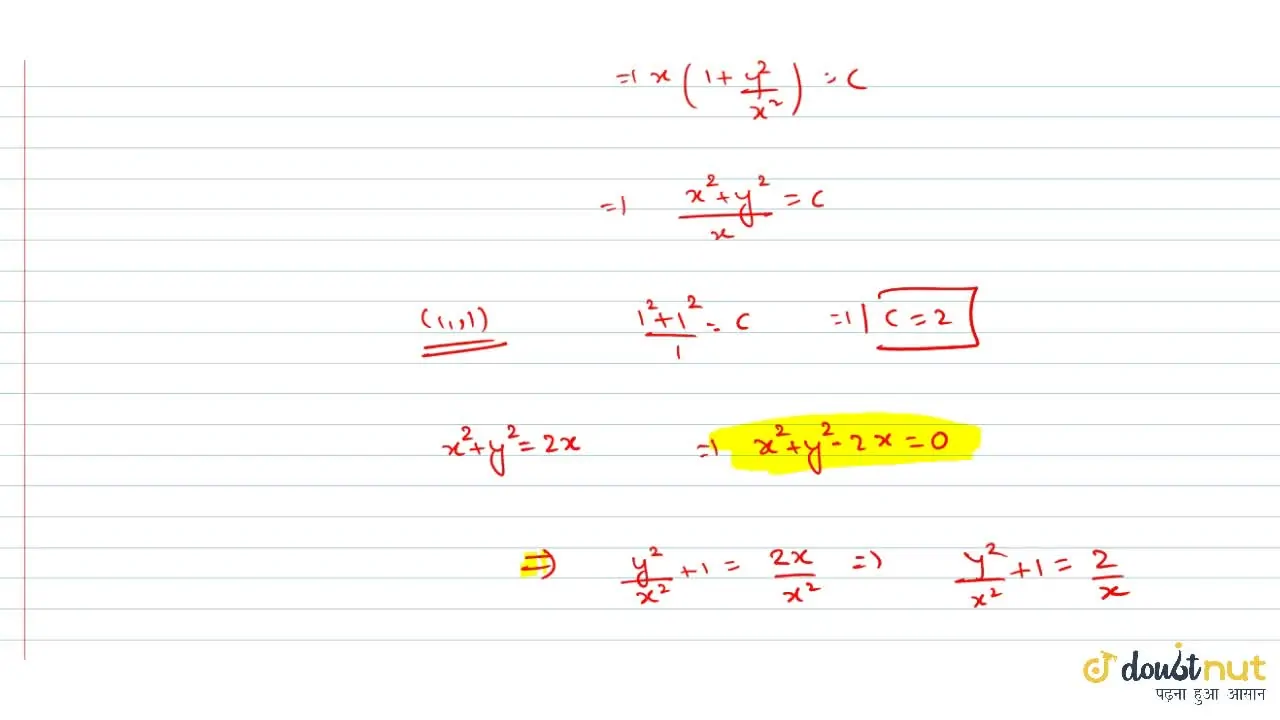 ⇒ x(1 + y²/x²) = C
⇒ x² + y²/x = C
(1,1) 1² + 1²/1 = C ⇒ C = 2
x² + y² = 2x ⇒ x² + y² - 2x = 0
⇒ y²/x² + 1 = 2x/x² ⇒ y²/x² + 1 = 2/x
doubtnut
पढ़ना हुआ आसान